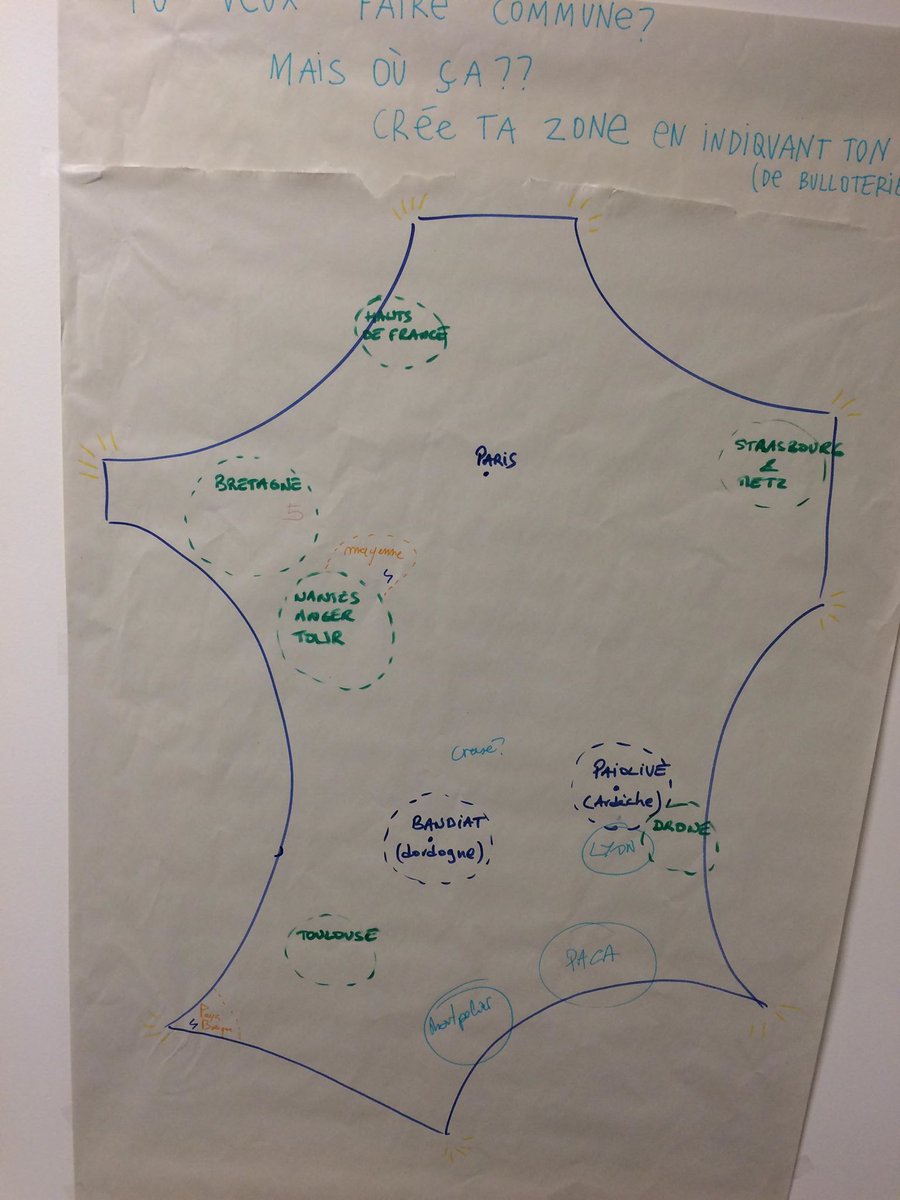 TU VEUX FAIRE COMMUNE?
MAIS OÙ ÇA??
CRÉE TA ZONE EN INDIQUANT TON
(DE BULLOTERIE
HAUTS
DE FRANCE
PARIS
STRASBOURG
&
METZ
BRETAGNE
5
mayenne
4
NANTES
ANGER
TOUR
Creuse?
PAIOLIVE
(Ardèche)
BANDIAT
(dordogne)
DROME
LYON
TOULOUSE
PACA
Pays
Basque
4
Montpellier